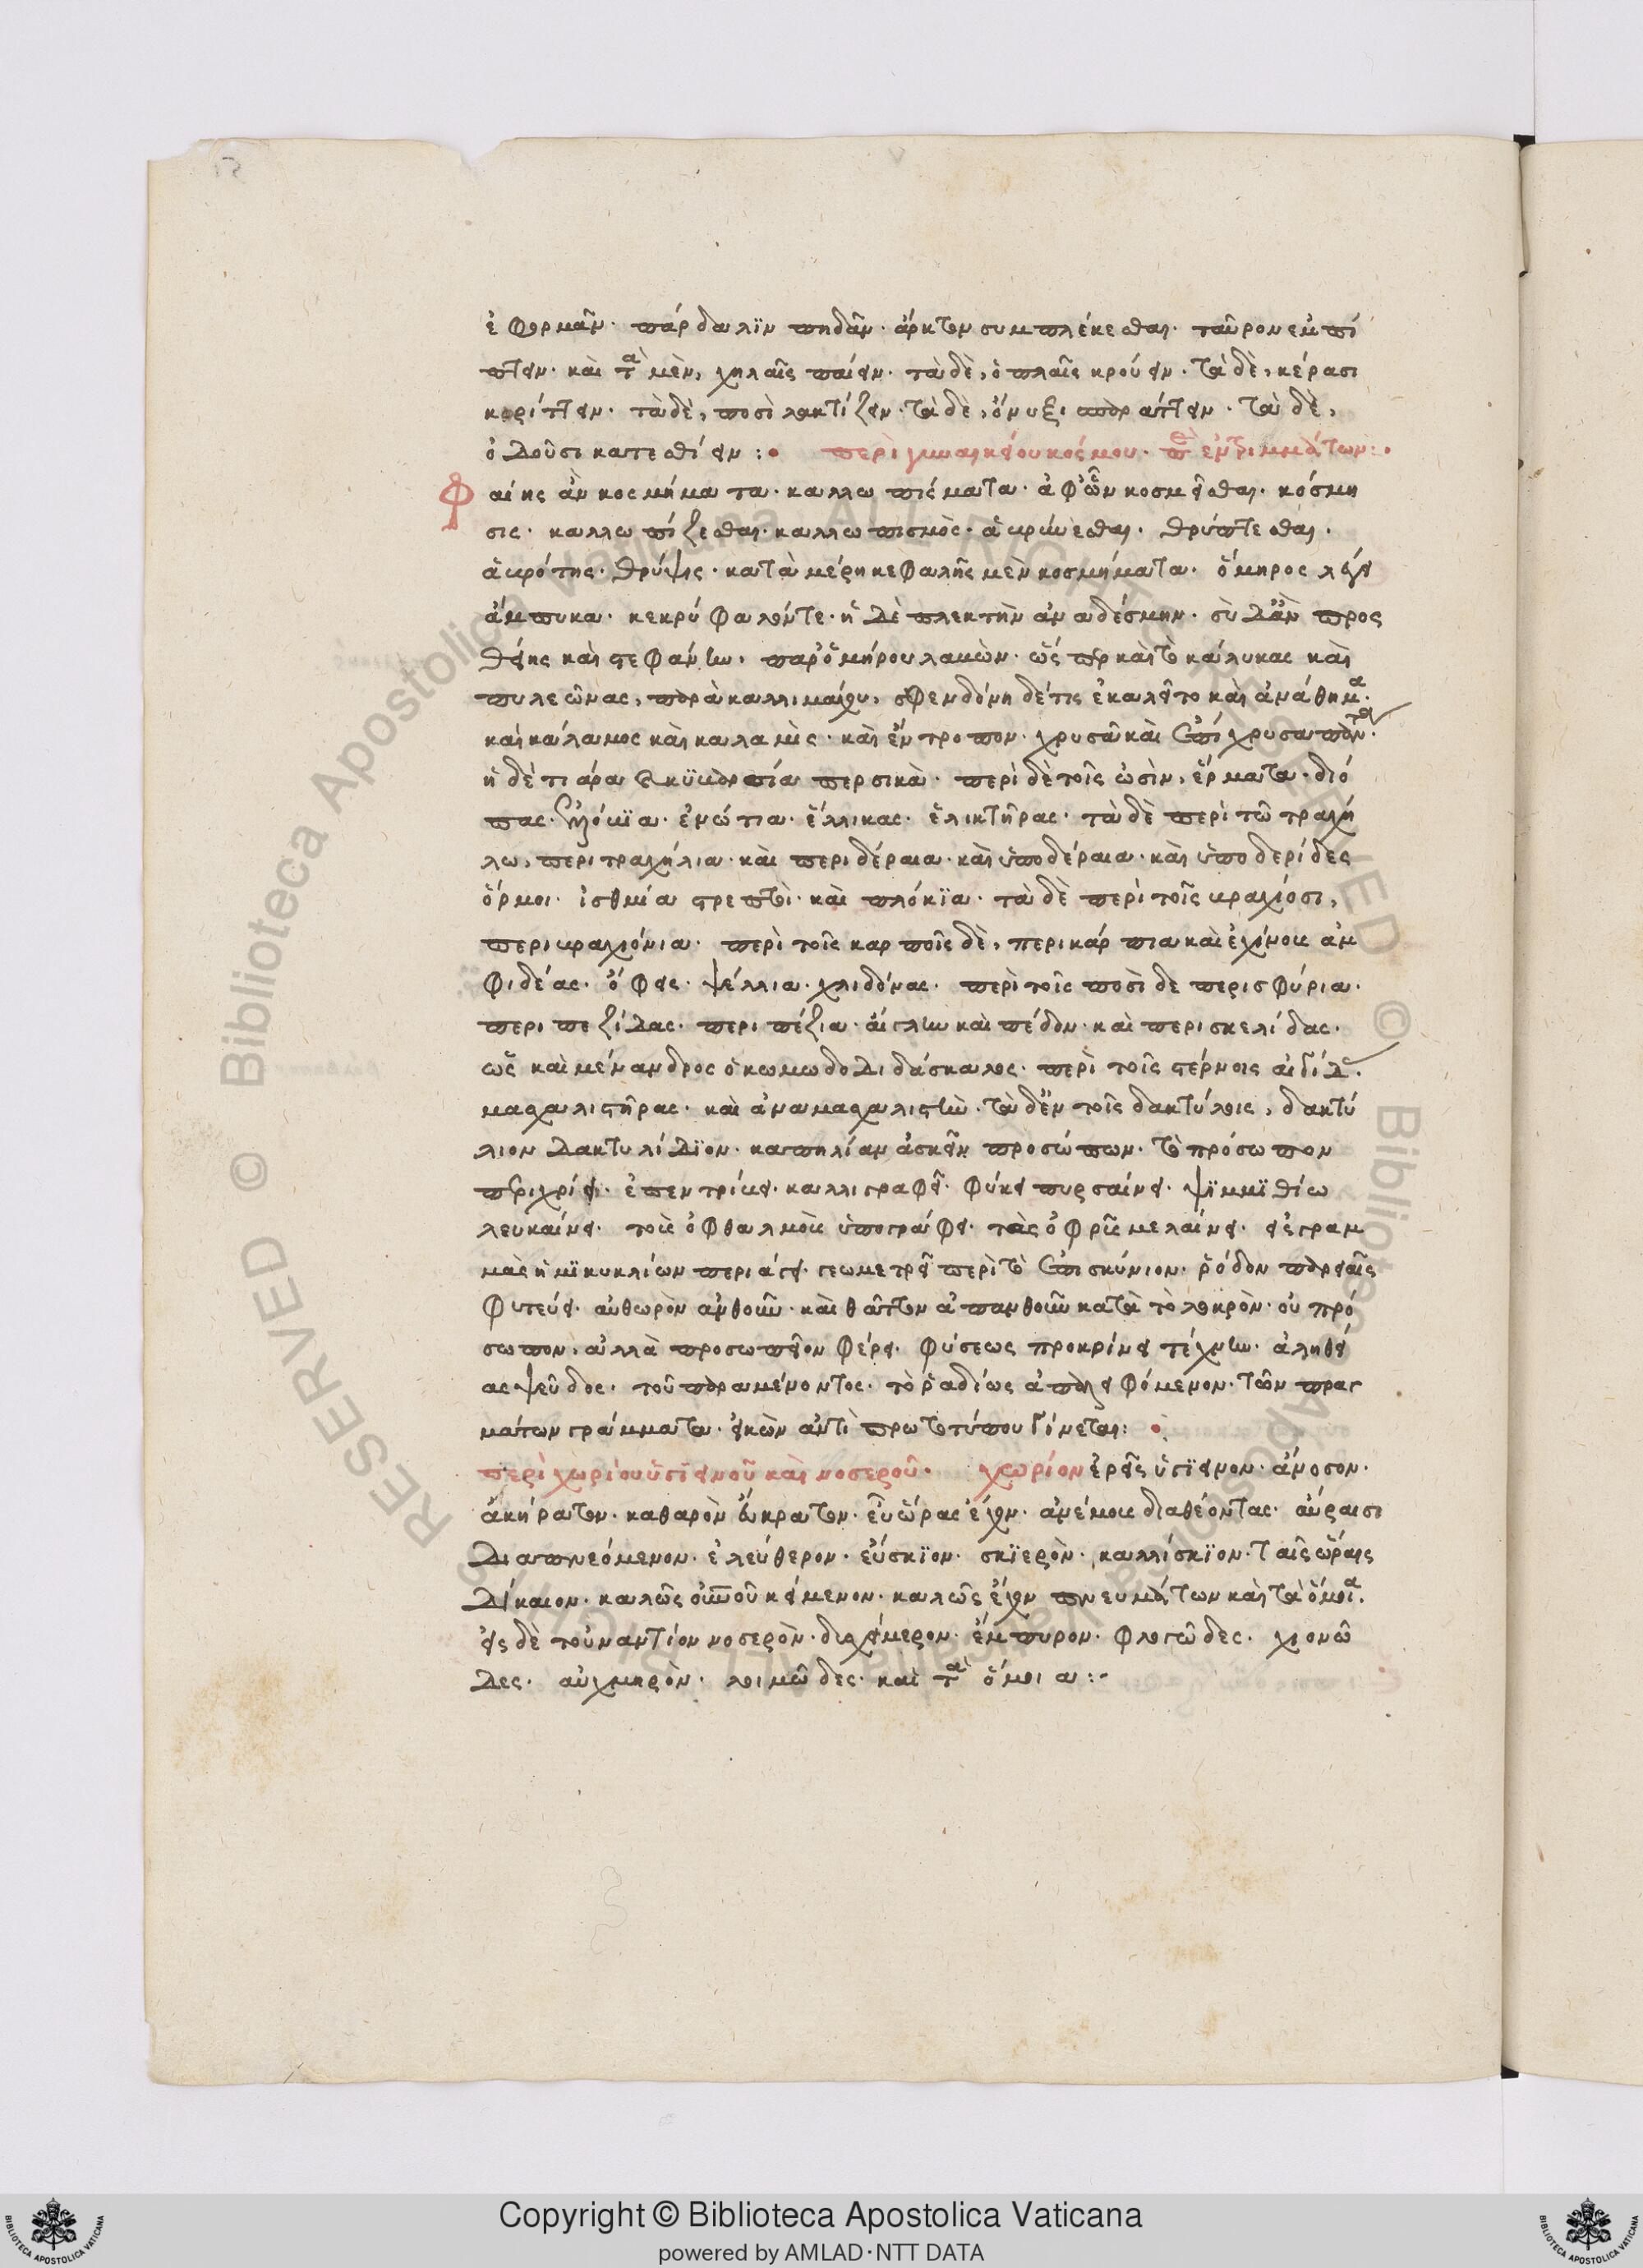 ἐφορμᾶν· πάρδαλϊν πηδᾶν· ἄρκτον συμπλέκεσθαι· ταῦρον ἐμπί
πτειν· καὶ τὰ μὲν, χηλαῖς παίειν· τὰ δὲ, ὁπλαῖς κρούειν· τὰ δὲ, κέρασι
κυρίττειν· τὰ δὲ, ποσὶ λακτίζειν· τὰ δὲ, ὄνυξι σπαράττειν· τὰ δὲ,
ὀδοῦσι κατεσθίειν :· περὶ γυναικείου κόσμου· ἐντριμμάτων:·
Φαίης ἂν κοσμήματα· καλλωπίσματα· ἀφ' ὧν κοσμεῖσθαι· κόσμη
σις· καλλωπίζεσθαι· καλλωπισμὸς· ἁβρύνεσθαι· θρύπτεσθαι·
ἁβρότης· θρύψις· κατὰ μέρη κεφαλῆς μὲν κοσμήματα· ὅμηρος λέγει
ἄμπυκα· κεκρύφαλόν τε· ἠδὲ πλεκτὴν ἀναδέσμην· σὺ δ' ἂν προς
θείης καὶ στεφάνην, παρ' ὁμήρου λαβὼν· ὥσπερ καὶ τὸ κάλυκας καὶ
πυλεῶνας, παρὰ καλλιμάχου, σφενδόνη δέ τις ἐκαλεῖτο καὶ ἀνάθημα·
καὶ κάλαμος καὶ καλαμὶς· καὶ ἔντροπον· χρυσᾶ καὶ ἐπίχρυσα πάντα·
ἡ δὲ τιάρα κϋβρασία περσικὰ· περὶ δὲ τοῖς ὠσὶν, ἕρματα· διό
πας· πλόκϊα· ἐνώτια· ἕλλικας· ἑλικτῆρας· τὰ δὲ περὶ τῶ τραχή
λω, περιτραχήλια· καὶ περιδέραια· καὶ ὑποδέραια· καὶ ὑποδερίδες
ὅρμοι· ἰσθμία στρεπτὶ· καὶ πλόκϊα· τὰ δὲ περὶ τοῖς βραχίοσι,
περιβραχιόνια· περὶ τοῖς καρποῖς δὲ, περικάρπια καὶ ἐχίνους ἀμ
φιδέας· ὄφεις· ψέλλια· χλιδόνας· περὶ τοῖς ποσὶ δε περισφύρια·
περιπεζίδας· περιπέζια· αἴγλην καὶ πέδον· καὶ περισκελίδας·
ὡς καὶ μένανδρος ὁ κωμωδοδιδάσκαλος· περὶ τοῖς στέρνοις αἰγίδας·
μασχαλιστῆρας· καὶ ἀναμασχαλιστὴν· τὰ δ' ἐν τοῖς δακτύλοις, δακτύ
λιον δακτυλίδϊον· καπηλίαν ἀσκεῖν προσώπων· τὸ πρόσωπον
περιχρίει· ἐπεντρίβει· καλλιγραφεῖ· φύκει πυρσαίνει· ψϊμμϊθίω
λευκαίνει· τοὺς ὀφθαλμοὺς ὑπογράφει· τὰς ὀφρῦς μελαίνει· εἰς γραμ
μὰς ἡμϊκυκλίων περιάγει· γεωμετρεῖ περὶ τὸ ἐπισκύνιον· ῥόδον παρειαῖς
φυτεύει· αὐθωρὸν ἀνθοῦν· καὶ θᾶττον ἀπανθοῦν κατὰ τὸ λοκρὸν· οὐ πρό
σωπον, ἀλλὰ προσωπεῖον φέρει· φύσεως προκρίνει τέχνην· ἀληθεί
ας ψεῦδος· τοῦ παραμένοντος· τὸ ῥαδίως ἀπαλειφόμενον· τῶν πραγ
μάτων γράμματα· εἰκὼν ἀντὶ πρωτοτύπου γίνεται:·
περὶ χωρίου ὑγϊεινοῦ καὶ νοσεροῦ· χωρίον ἐρεῖς ὑγϊεινον· ἄνοσον·
ἀκήρατον· καθαρὸν εὔκρατον· εὖ ὥρας ἔχον· ἀνέμους διαθέοντας· αὔραισι
διαπνεόμενον· ἐλεύθερον· εὔσκϊον· σκϊερὸν· καλλίσκϊον· ταῖς ὥραις
δίκαιον· καλῶς κείμενον· καλῶς ἔχον πνευμάτων καὶ τὰ ὅμοια·
εἰς δὲ τοὐναντίον νοσερὸν· δυσχείμερον· ἔμπυρον· φλογῶδες· χιονῶ
δες· αὐχμηρὸν· λοιμῶδες· καὶ τὰ ὅμοια :-
Copyright © Biblioteca Apostolica Vaticana
powered by AMLAD·NTT DATA